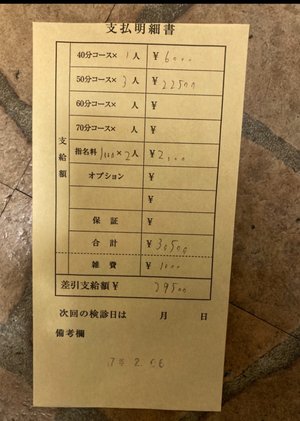 支払明細書
40分コース× 1人 ¥ 6000
50分コース× 3人 ¥ 22500
60分コース× 人 ¥
70分コース× 人 ¥
支給額
指名料 1000×2人 ¥ 2,000
オプション ¥
¥
保証 ¥
合計 ¥ 30500
雑費 ¥ 1000
差引支給額¥ 29500
次回の検診日は 月 日
備考欄
2.06